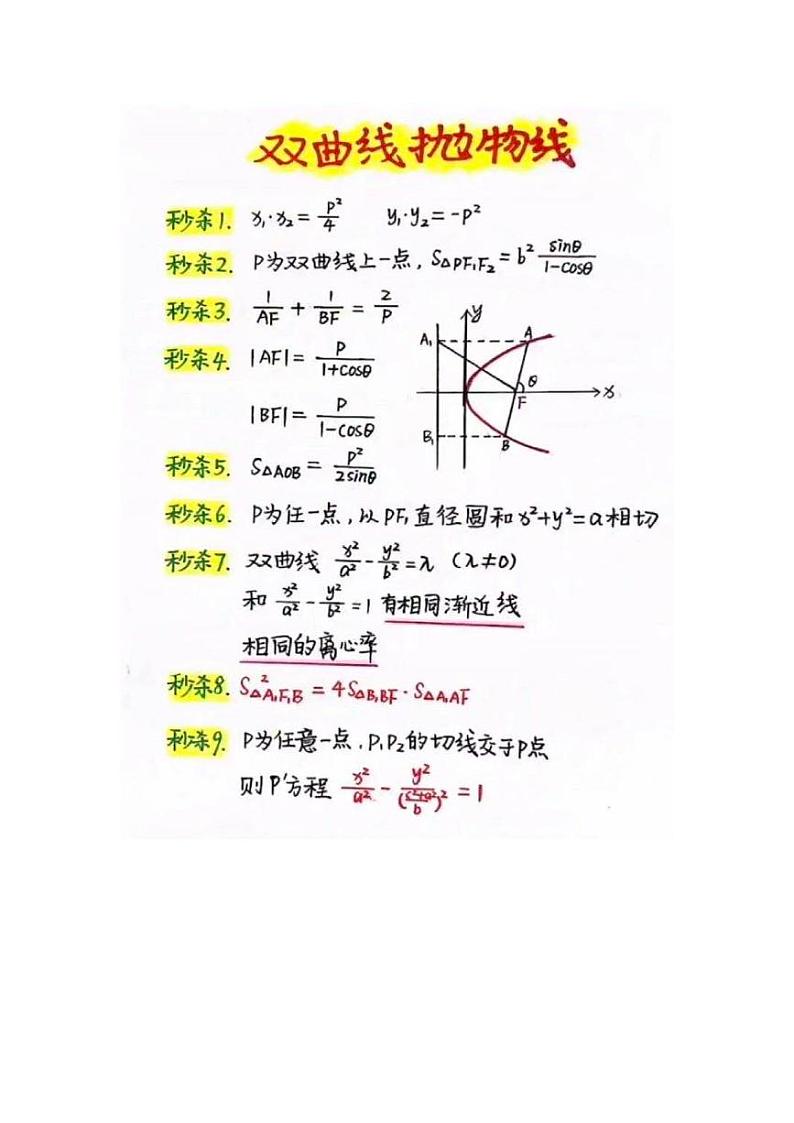 双曲线抛物线
秒杀1. x₁·x₂ = p²/4 y₁·y₂ = -p²
秒杀2. P为双曲线上一点, S△PF₁F₂ = b² sinθ/(1-cosθ)
秒杀3. 1/AF + 1/BF = 2/P
秒杀4. |AF| = P/(1+cosθ)
|BF| = P/(1-cosθ)
y
A₁ A
θ
F x
B₁ B
秒杀5. S△AOB = P²/(2sinθ)
秒杀6. P为任一点, 以PF₁直径圆和x²+y²=a相切
秒杀7. 双曲线 x²/a² - y²/b² = λ (λ≠0)
和 x²/a² - y²/b² = 1 有相同渐近线
相同的离心率
秒杀8. S²△A₁F₁B = 4S△B₁BF · S△A₁AF
秒杀9. P为任意一点, P₁P₂的切线交于P点
则P'方程 x²/a² - y²/((c²+a²)/b)² = 1